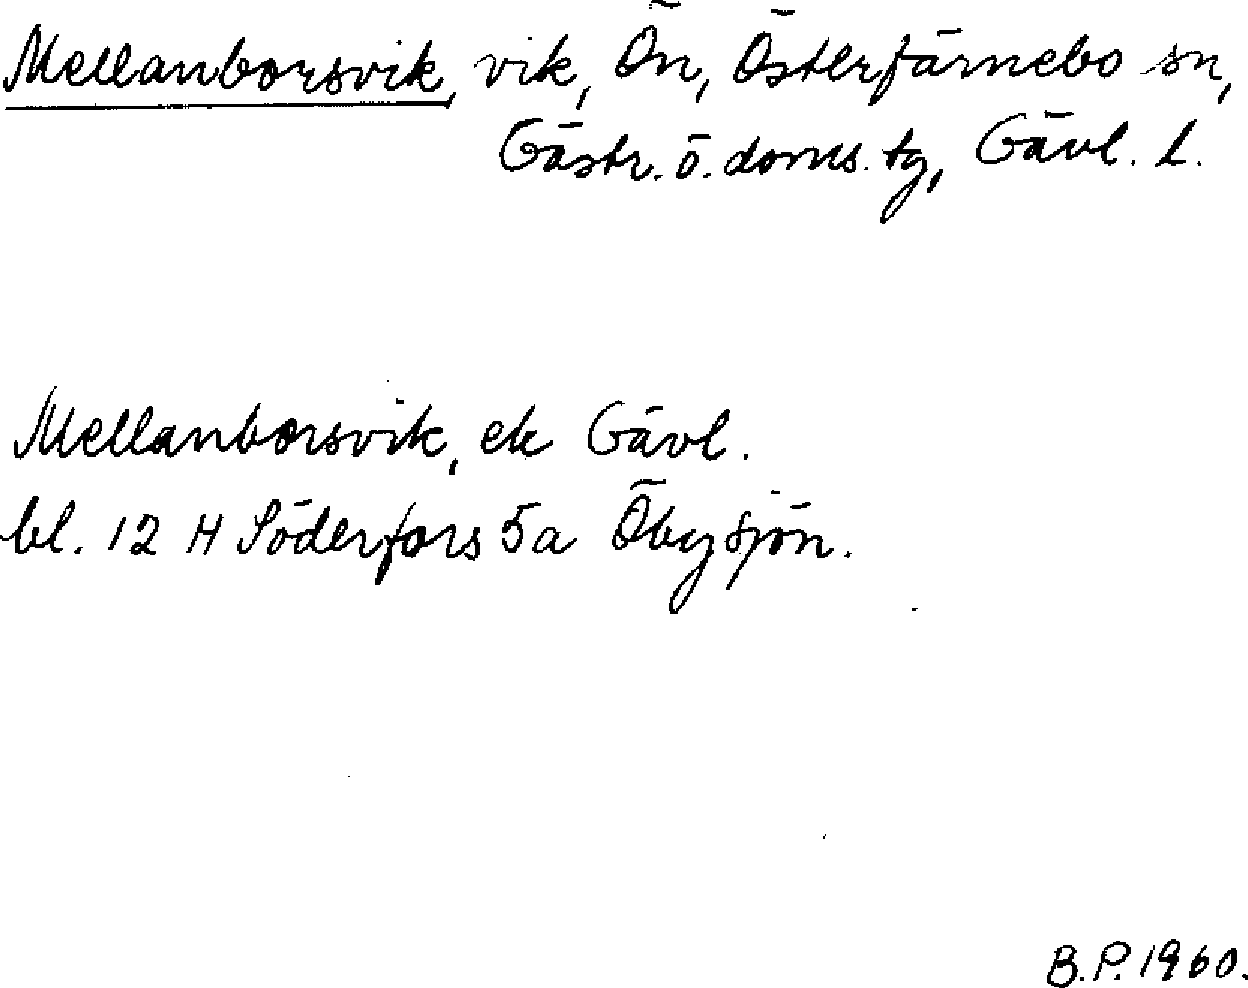 Mellanborsvik, vik, Ön, Österfärnebo sn,
Gästr. ö. doms. tg, Gävl. l.
Mellanborsvik, ek Gävl.
bl. 12 H Söderfors 5a Öbysjön.
B.P. 1960.